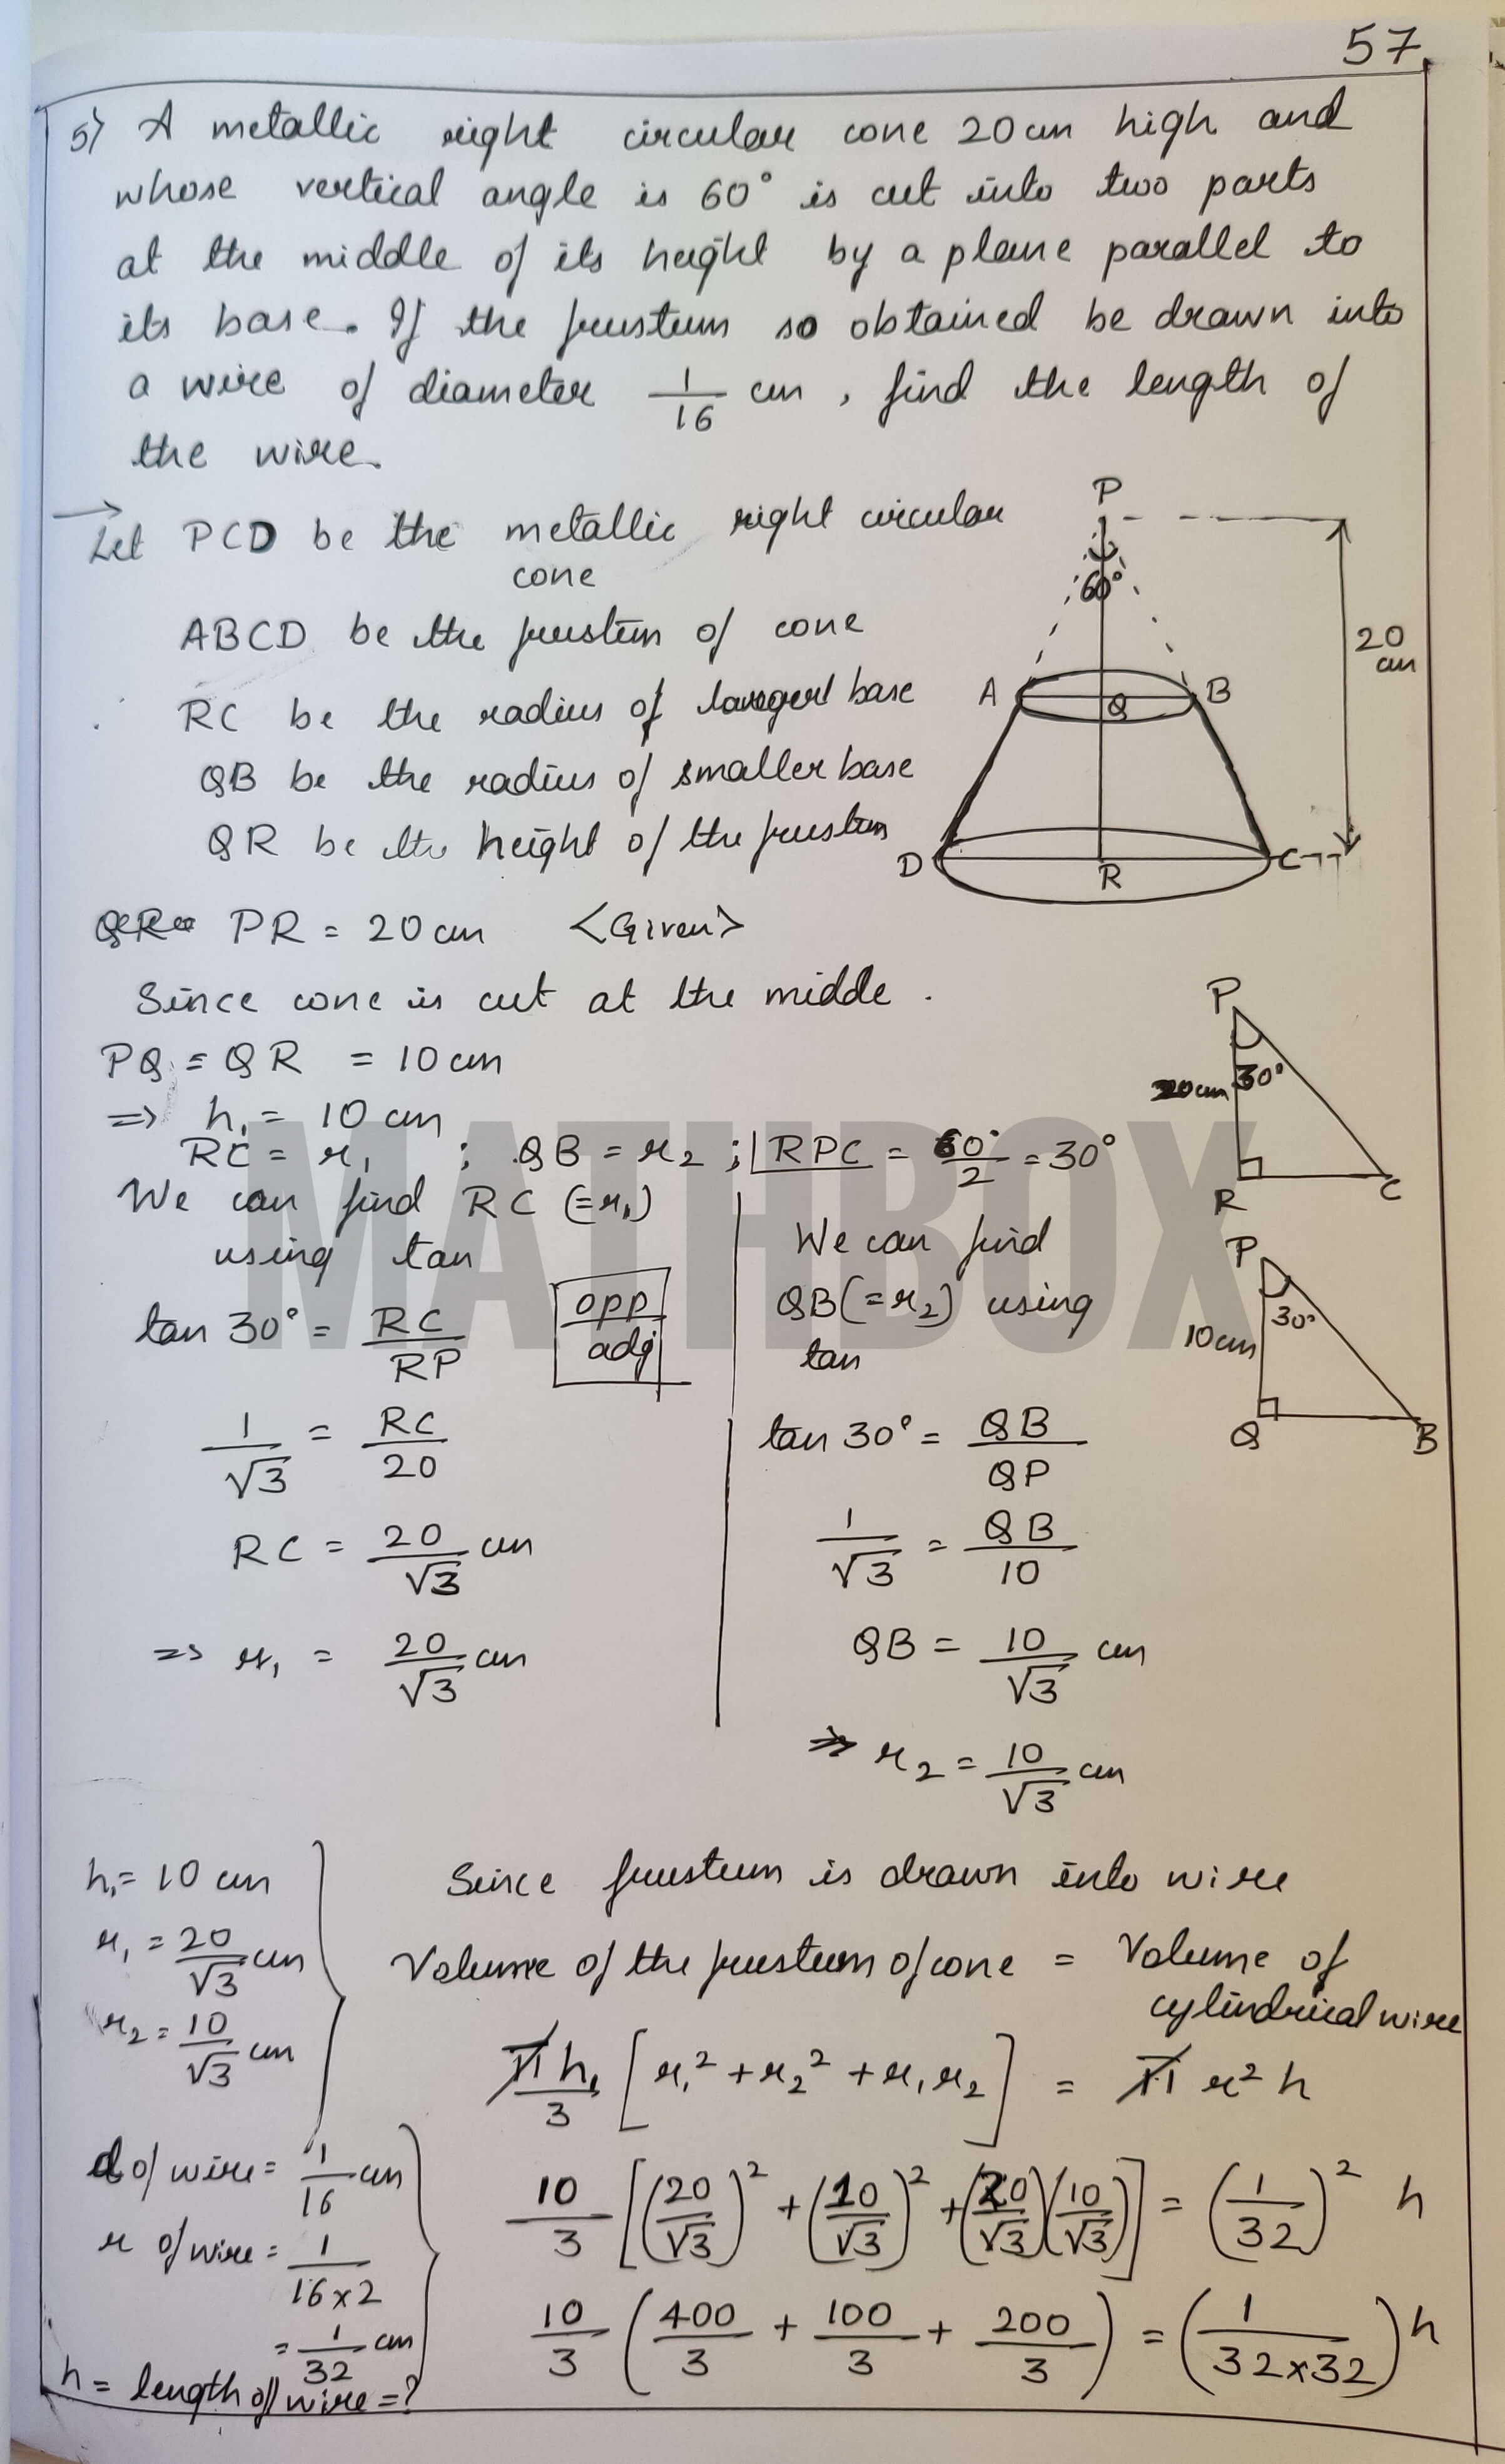 57
5) A metallic right circular cone 20cm high and
whose vertical angle is 60° is cut into two parts
at the middle of its height by a plane parallel to
its base. If the frustum so obtained be drawn into
a wire of diameter 1/16 cm, find the length of
the wire.
→ Let PCD be the metallic right circular
cone
ABCD be the frustum of cone
RC be the radius of larger base
QB be the radius of smaller base
QR be the height of the frustum
P
60°
A Q B
D R C
20
cm
PR = 20cm <Given>
Since cone is cut at the middle.
PQ = QR = 10cm
=> h₁ = 10 cm
RC = r₁ ; QB = r₂ ; ∠RPC = 60°/2 = 30°
P
20cm 30°
R C
We can find RC (=r₁)
using tan
tan 30° = RC/RP
opp/adj
1/√3 = RC/20
RC = 20/√3 cm
=> r₁ = 20/√3 cm
We can find
QB(=r₂) using
tan
P
30°
10cm
Q B
tan 30° = QB/QP
1/√3 = QB/10
QB = 10/√3 cm
=> r₂ = 10/√3 cm
MATHBOX
h₁ = 10 cm
r₁ = 20/√3 cm
r₂ = 10/√3 cm
d of wire = 1/16 cm
r of wire = 1/16×2
= 1/32 cm
h = length of wire = ?
Since frustum is drawn into wire
Volume of the frustum of cone = Volume of
cylindrical wire
πh₁/3 [r₁² + r₂² + r₁r₂] = πr²h
10/3 [(20/√3)² + (10/√3)² + (20/√3)(10/√3)] = (1/32)² h
10/3 (400/3 + 100/3 + 200/3) = (1/32×32) h